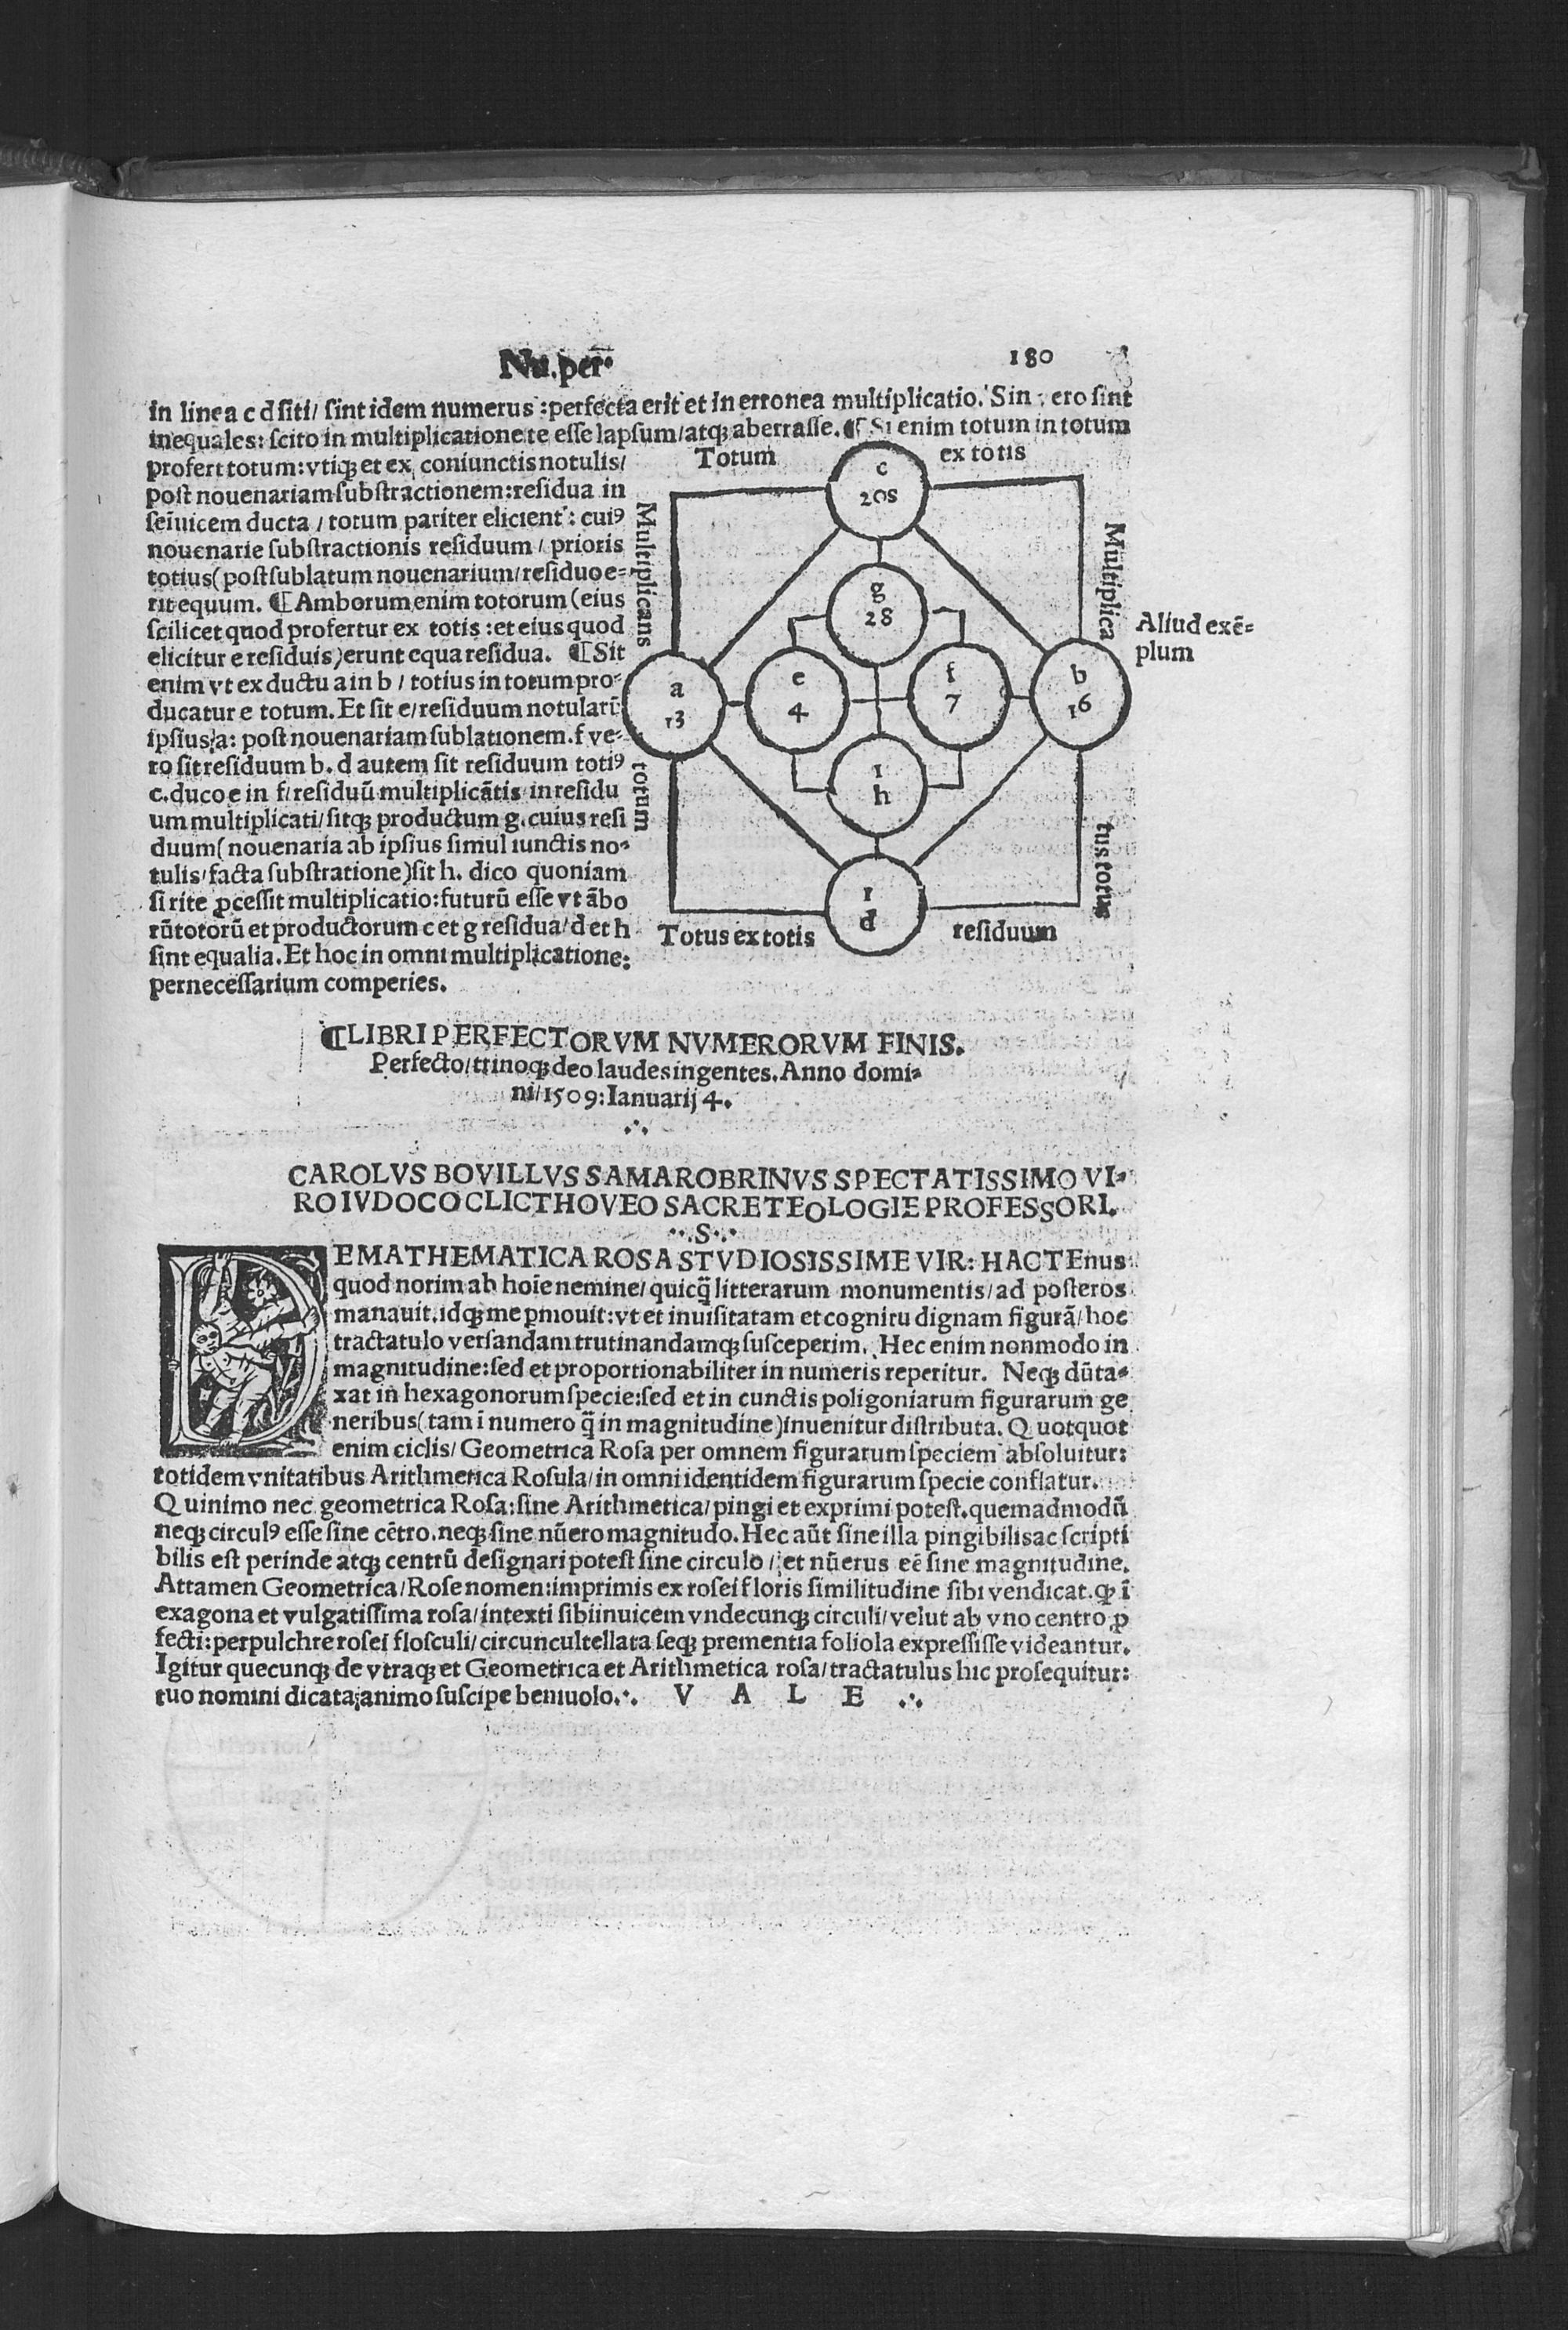 Nu.per̃.
180
in linea c d siti/ sint idem numerus :perfecta erit et in erronea multiplicatio. Sin vero sint
inequales: scito in multiplicatione te esse lapsum/atqꝫ aberrasse. ¶ Si enim totum in totum
profert totum: vtiqꝫ et ex coniunctis notulis/
post nouenariam substractionem:residua in
seīuicem ducta / totum pariter elicient: cuiꝰ
nouenarie substractionis residuum / prioris
totius(post sublatum nouenarium/residuo e-
rit equum. ¶ Amborum enim totorum (eius
scilicet quod profertur ex totis :et eius quod
elicitur e residuis)erunt equa residua. ¶ Sit
enim vt ex ductu a in b / totius in totum pro-
ducatur e totum. Et sit e/residuum notularū
ipsius/a: post nouenariam sublationem. f ve-
ro sit residuum b. d autem sit residuum totiꝰ
c. duco e in f/ residuū multiplicātis in residu
um multiplicati/sitqꝫ productum g. cuius resi
duum(nouenaria ab ipsius simul iunctis no-
tulis/facta substratione)sit h. dico quoniam
si rite ꝓcessit multiplicatio:futurū esse vt ābo
rūtotorū et productorum c et g residua/d et h
sint equalia. Et hoc in omni multiplicatione:
pernecessarium comperies.
Totum
ex totis
Multiplicans
totum
Multiplica
tus totus
Totus ex totis
residuum
c
208
g
28
a
13
e
4
f
7
b
16
1
h
1
d
Aliud exē-
plum
¶LIBRI PERFECTORVM NVMERORVM FINIS.
Perfecto/trinoqꝫ deo laudes ingentes. Anno domi-
ni/1509: Ianuarij 4.
CAROLVS BOVILLVS SAMAROBRINVS SPECTATISSIMO VI-
RO IVDOCO CLICTHOVEO SACRE TEOLOGIE PROFESSORI.
.S.
DE MATHEMATICA ROSA STVDIOSISSIME VIR: HACTEnus
quod norim ab hoīe nemine/ quicq̄ litterarum monumentis/ad posteros
manauit. idqꝫ me ꝑmouit: vt et inuisitatam et cognitu dignam figurā/ hoc
tractatulo versandam trutinandamqꝫ susceperim. Hec enim nonmodo in
magnitudine:sed et proportionabiliter in numeris reperitur. Neqꝫ dūta-
xat in hexagonorum specie:sed et in cunctis poligoniarum figurarum ge
neribus(tam ī numero q̄ in magnitudine)inuenitur distributa. Quotquot
enim ciclis/ Geometrica Rosa per omnem figurarum speciem absoluitur:
totidem vnitatibus Arithmetica Rosula/in omni identidem figurarum specie conflatur.
Quinimo nec geometrica Rosa:sine Arithmetica/pingi et exprimi potest.quemadmodū
neqꝫ circulꝰ esse sine cētro.neqꝫ sine nūero magnitudo. Hec aūt sine illa pingibilis ac scripti
bilis est perinde atqꝫ centrū designari potest sine circulo / et nūerus eē sine magnitudine.
Attamen Geometrica/Rose nomen:imprimis ex rosei floris similitudine sibi vendicat.qꝙ ī
exagona et vulgatissima rosa/intexti sibiinuicem vndecunqꝫ circuli/velut ab vno centro ꝓ
fecti:perpulchre rosei flosculi/circuncultellata seqꝫ prementia foliola expressisse videantur.
Igitur quecunqꝫ de vtraqꝫ et Geometrica et Arithmetica rosa/tractatulus hic prosequitur:
tuo nomini dicata:animo suscipe beniuolo. V A L E